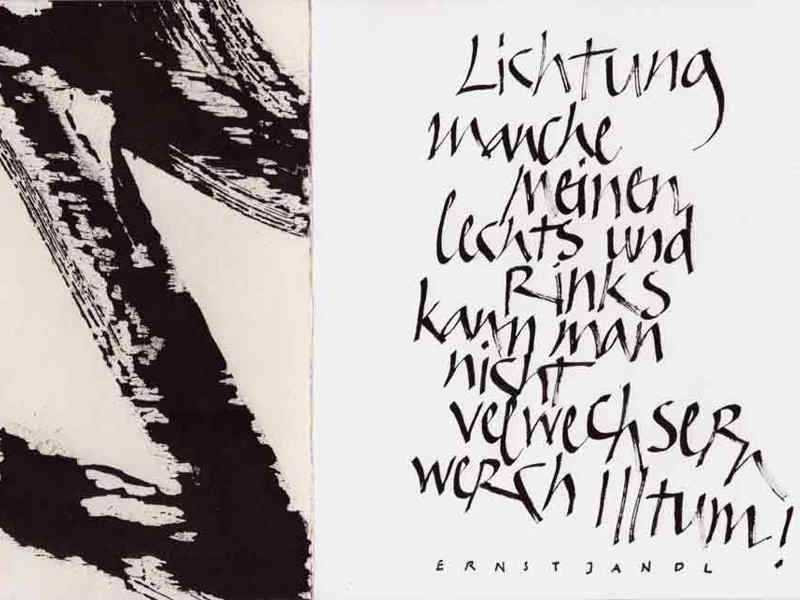 Lichtung
manche
meinen
lechts und
Rinks
kann man
nicht
velwechsern
werch Illtum!
ERNST JANDL